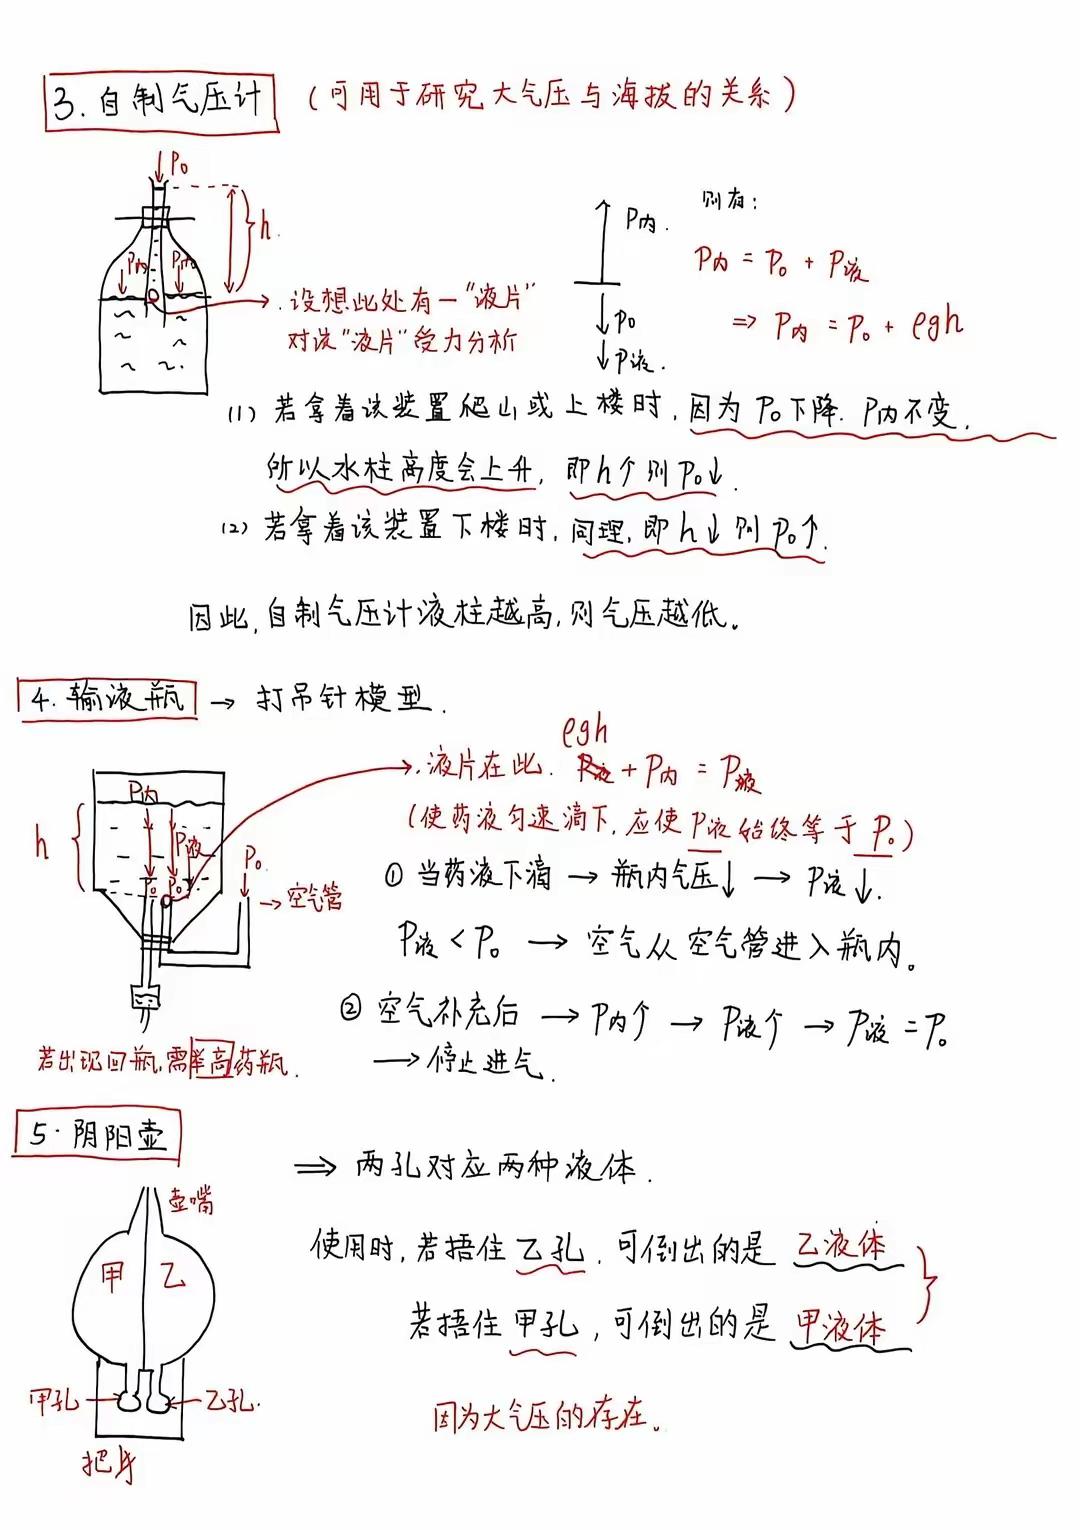 3.自制气压计 (可用于研究大气压与海拔的关系)
P₀
h.
P内
P内
P内.
P₀
P液.
则有:
P内 = P₀ + P液
⇒ P内 = P₀ + ρgh
设想此处有一“液片”
对该“液片”受力分析
(1) 若拿着该装置爬山或上楼时,因为P₀下降.P内不变,
所以水柱高度会上升,即h个则P₀↓.
(2) 若拿着该装置下楼时,同理,即h↓则P₀↑.
因此,自制气压计液柱越高,则气压越低。
4.输液瓶 → 打吊针模型.
ρgh
液片在此. P液 + P内 = P液
(使药液匀速滴下,应使P液始终等于P₀)
P内
h
P液
P₀
P₀
P₀
→空气管
① 当药液下滴 → 瓶内气压↓ → P液↓.
P液 < P₀ → 空气从空气管进入瓶内。
② 空气补充后 → P内个 → P液个 → P液 = P₀
→停止进气.
若出现回瓶,需举高药瓶.
5.阴阳壶
⇒ 两孔对应两种液体.
壶嘴
甲 乙
使用时,若捂住乙孔,可倒出的是 乙液体
若捂住甲孔,可倒出的是 甲液体
甲孔
乙孔.
因为大气压的存在。
把手